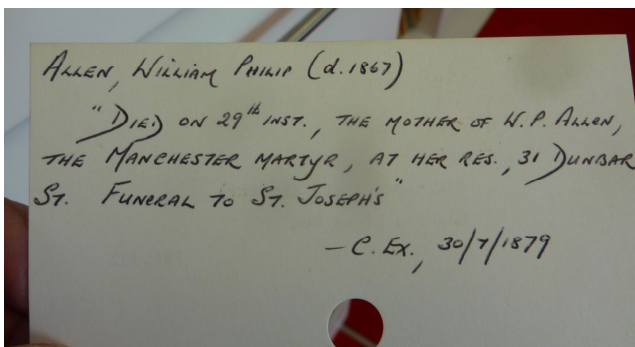 ALLEN, WILLIAM PHILIP (d. 1867)
"DIED ON 29th INST., THE MOTHER OF W.P. ALLEN,
THE MANCHESTER MARTYR, AT HER RES., 31 DUNBAR
ST. FUNERAL TO ST. JOSEPH'S"
— C. EX., 30/7/1879